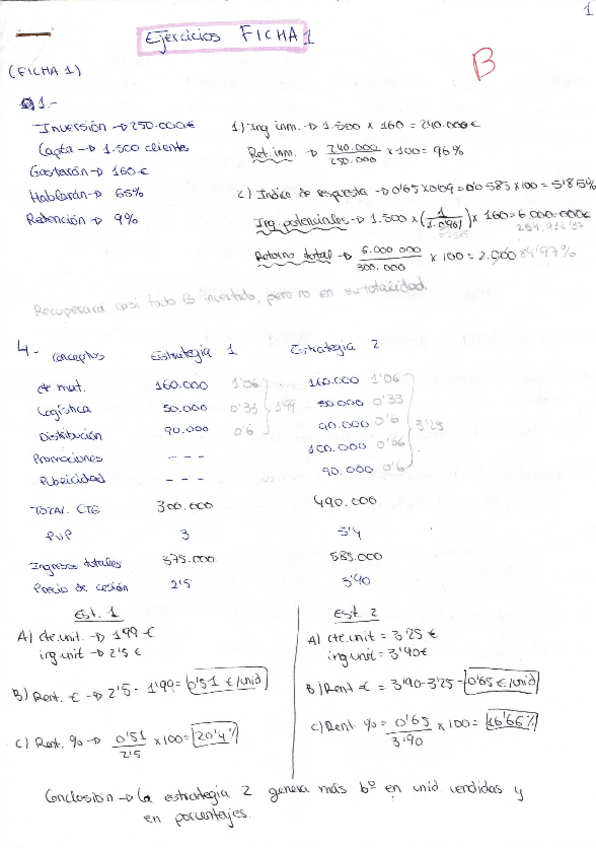 1
Ejercicios FICHA 1
B
(FICHA 1)
1.-
Inversión → 250.000€
Capta → 1.500 clientes
Gastarán → 160€
Hablarán → 65%
Retención → 9%
1) Ing inm. → 1.500 x 160 = 240.000€
Ret. inm. → 240.000 / 250.000 x 100 = 96%
2) Indice de respuesta → 0'65 x 0'09 = 0'0585 x 100 = 5'85%
Ing. potenciales → 1.500 x (1 / 1-0'96) x 160 = 6.000.000€
254.912'17
Retorno total → 6.000.000 / 300.000 x 100 = 2.000 84'97%
Recuperará casi todo lo invertido, pero no en su totalidad.
4- Conceptos Estrategia 1 Estrategia 2
cte mat. 160.000 1'06 160.000 1'06
Logística 50.000 0'33 50.000 0'33
Distribución 90.000 0'6 90.000 0'6
1'99 3'25
Promociones --- 100.000 0'66
Publicidad --- 90.000 0'6
TOTAL CTE 300.000 490.000
PVP 3 5'4
Ingresos totales 375.000 585.000
Precio de cesión 2'5 3'90
Est. 1
A) cte.unit. → 1'99 €
ing unit → 2'5 €
B) Rent. € → 2'5 - 1'99 = 0'51 €/unid
C) Rent. % → 0'51 / 2'5 x 100 = 20'4%
Est. 2
A) cte.unit = 3'25 €
ing unit = 3'90€
B) Rent € = 3'90 - 3'25 = 0'65 €/unid
C) Rent % = 0'65 / 3'90 x 100 = 16'66%
Conclusión → La estrategia 2 genera más bº en unid. vendidas y
en porcentajes.